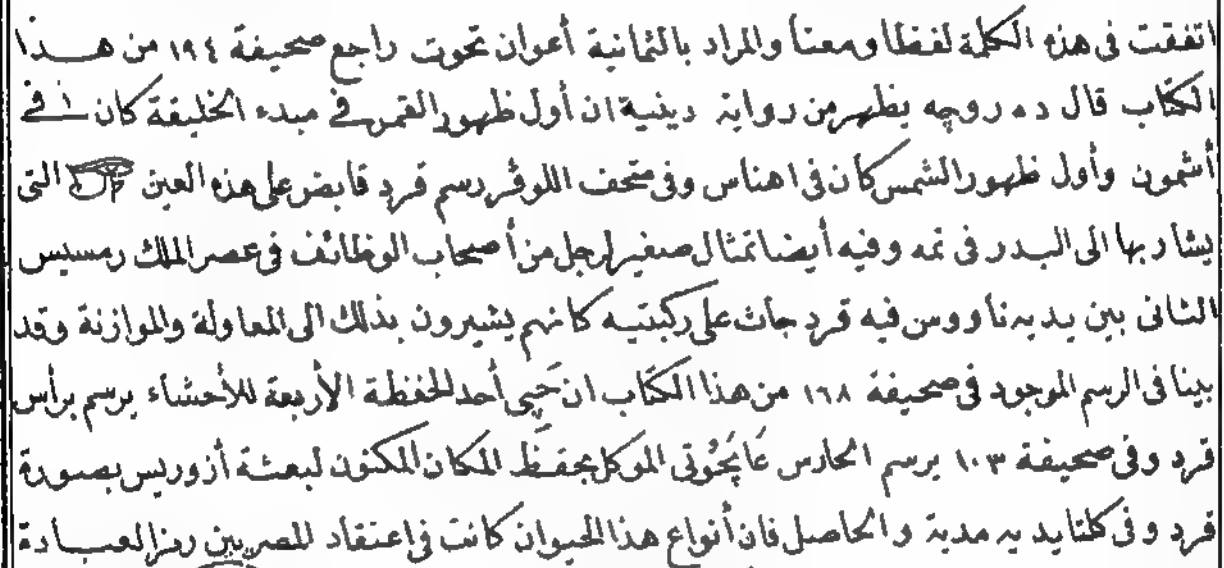 اتفقت فى هذه الكلمة لفظا ومعنأ والمراد بالثمانية أعوان تحوت راجع صحيفة ١٩٤ من هــذا
الكتاب قال ده روچه يظهر من رواية دينية ان أول ظهور القمر فى مبدء الخليقة كان فى
أشمون وأول ظهور الشمس كان فى اهناس وفى متحف اللوڤر رسم قرد قابض على هذه العين التى
يشار بها الى البدر فى تمه وفيه أيضا تمثال صغير لرجل من أصحاب الوظائف فى عصر الملك رمسيس
الثانى بين يديه ناووس فيه قرد جاث على ركبتيه كانهم يشيرون بذلك الى المعاولة والموازنة وقد
بينا فى الرسم الموجود فى صحيفة ١٦٨ من هذا الكتاب ان حَپى أحد الحفظة الأربعة للأحشاء يرسم برأس
قرد وفى صحيفة ١٠٣ يرسم الحارس الموكل بحفظ المكان المكنون لبعثة أزوريس بصورة
قرد وفى كلتا يديه مدية والحاصل فان أنواع هذا الحيوان كانت فى اعتقاد المصريين رمزا لعبــادة